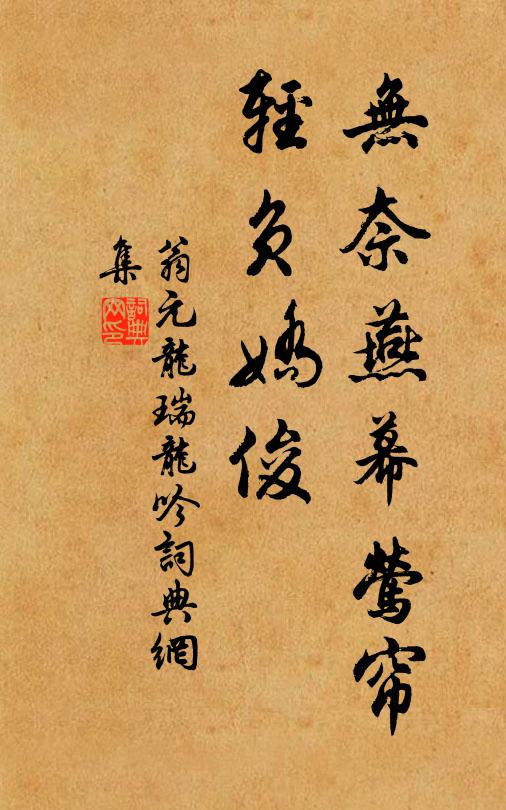 無奈燕幕鶯帘
輕負嬌俊
翁元龍瑞龍吟詞典網
集
詞典網印